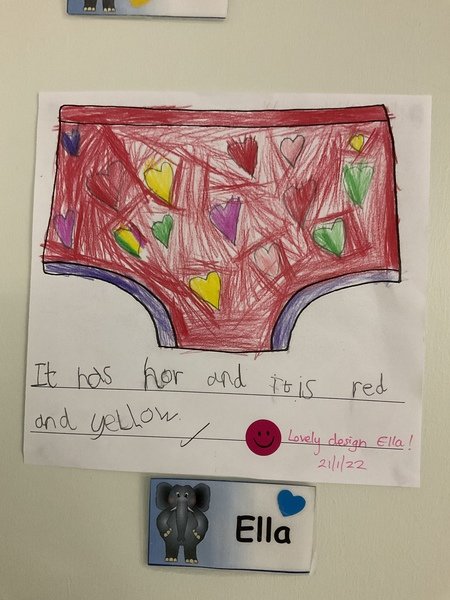 It has hor and it is red
and yellow.
Lovely design Ella!
21/1/22
Ella